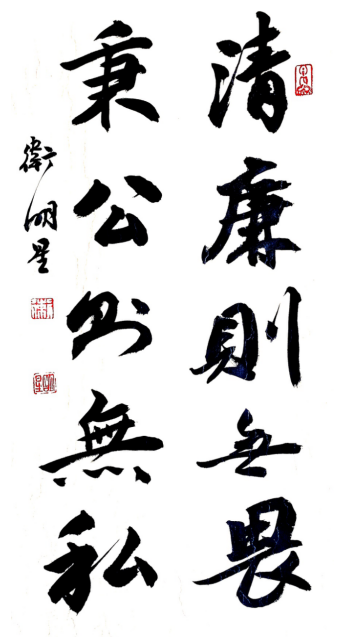 清廉則無畏
秉公则無私
衛明星